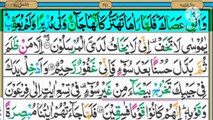 وَاَلْقِ عَصَاكَ ؕ فَلَمَّا رَاٰهَا تَهْتَزُّ كَاَنَّهَا جَآنٌّ وَّلّٰى مُدْبِرًا وَّلَمْ يُعَقِّبْ ؕ
يٰمُوْسٰى لَا تَخَفْ اِنِّيْ لَا يَخَافُ لَدَيَّ الْمُرْسَلُوْنَ ۝ اِلَّا مَنْ ظَلَمَ
ثُمَّ بَدَّلَ حُسْنًۢا بَعْدَ سُوْٓءٍ فَاِنِّيْ غَفُوْرٌ رَّحِيْمٌ ۝ وَاَدْخِلْ يَدَكَ
فِيْ جَيْبِكَ تَخْرُجْ بَيْضَآءَ مِنْ غَيْرِ سُوْٓءٍ فِيْ تِسْعِ اٰيٰتٍ اِلٰى فِرْعَوْنَ
وَقَوْمِهٖ ؕ اِنَّهُمْ كَانُوْا قَوْمًا فٰسِقِيْنَ ۝ فَلَمَّا جَآءَتْهُمْ اٰيٰتُنَا مُبْصِرَةً